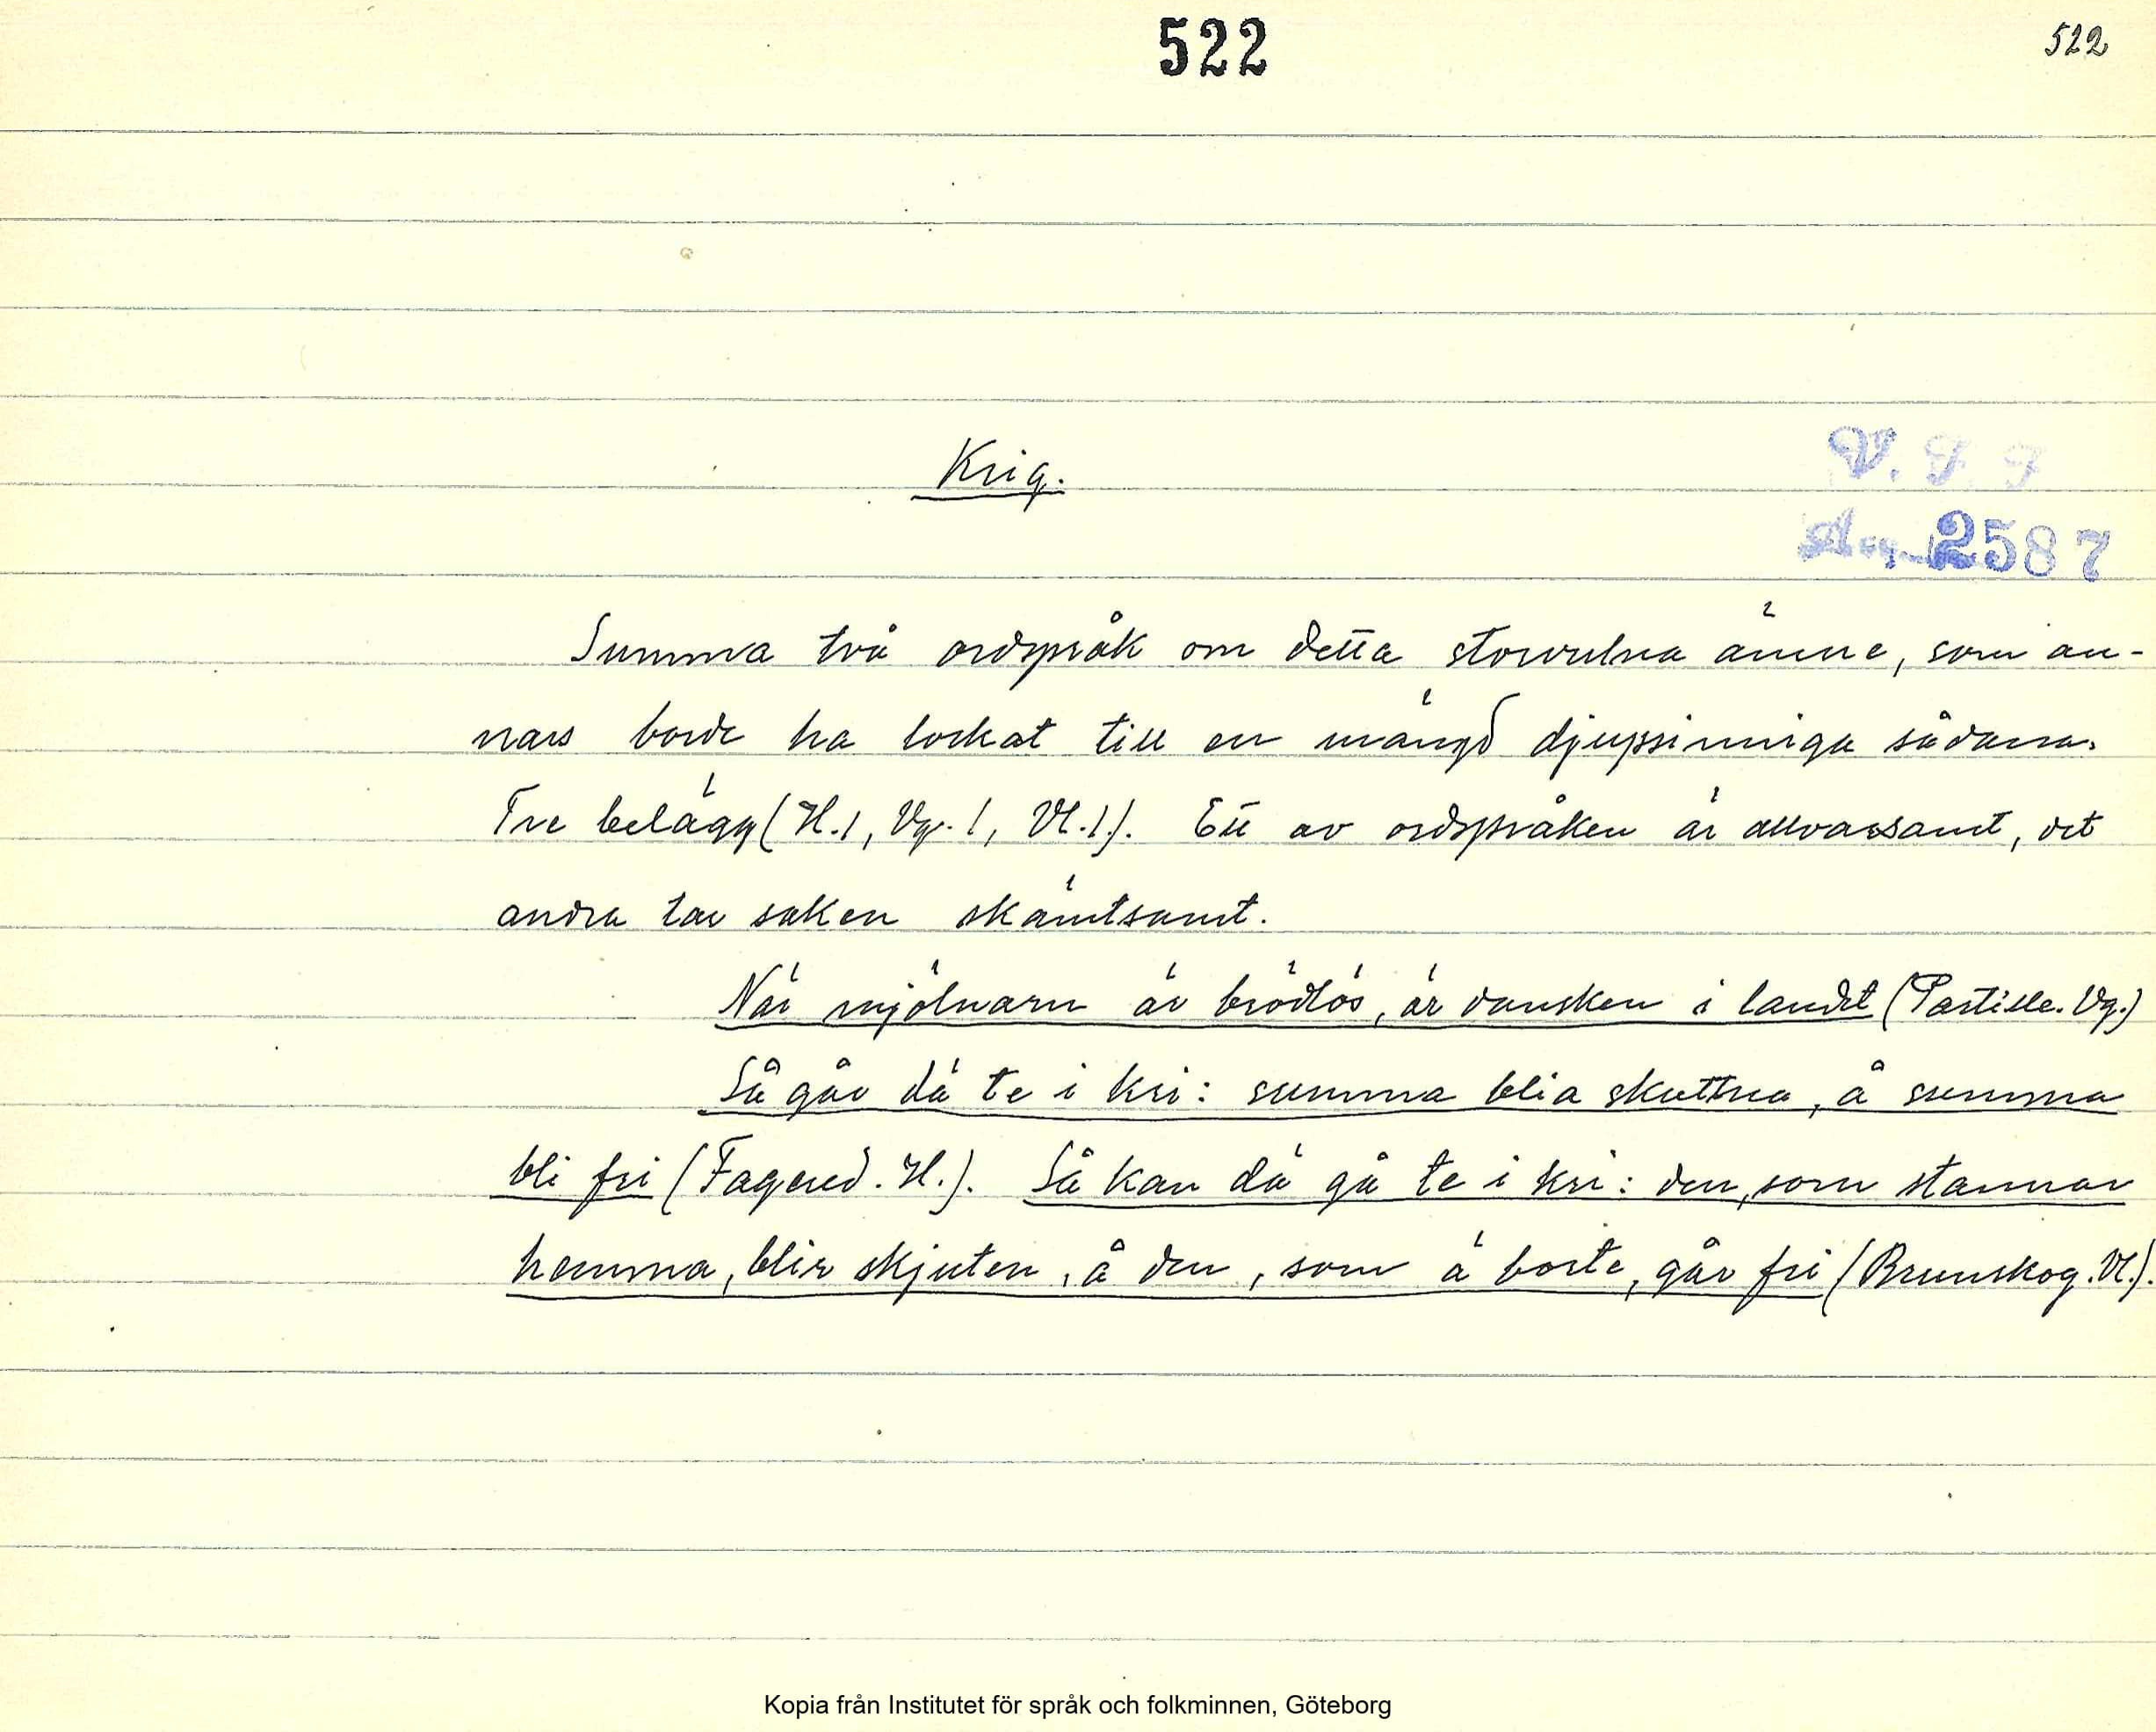 522
522
Krig.
V. F. F
Acc. 2587
Summa två ordspråk om detta storvulna ämne, som an-
nars borde ha lockat till en mängd djupsinniga sådana.
Tre belägg (H.1, Vg. 1, Vl.1.). Ett av ordspråken är allvarsamt, det
andra tar saken skämtsamt.
När mjölnarn är brödlös, är dansken i landet (Partille. Vg.)
Så går dä te i kri: summa blia skuttna, å summa
bli fri (Fagered. H.). Så kan dä gå te i kri: den, som stannar
hemma, blir skjuten, å den, som ä borte, går fri (Brunskog. Vl.).
Kopia från Institutet för språk och folkminnen, Göteborg